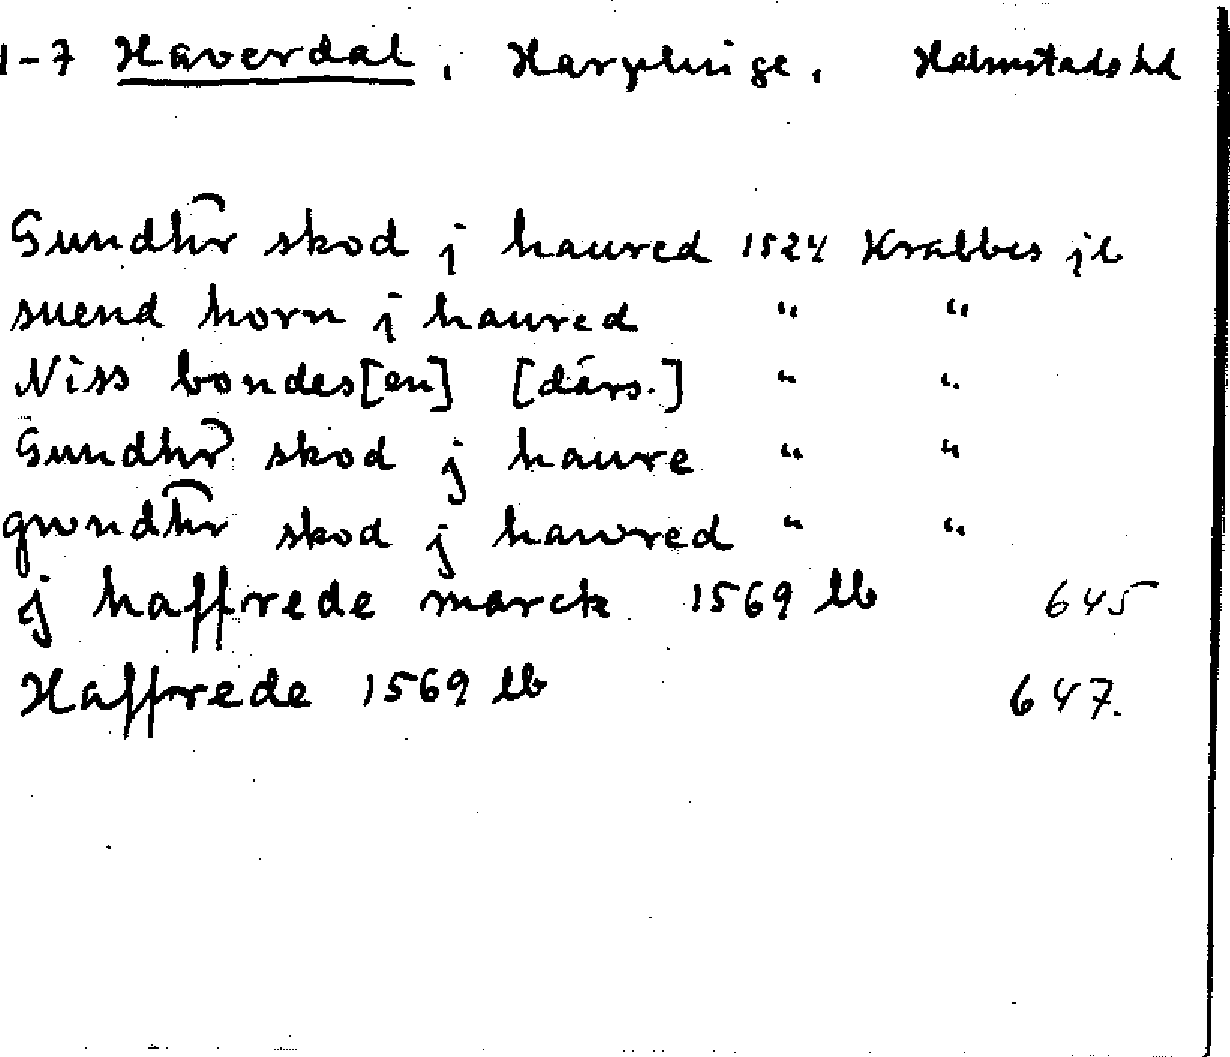 1-7 Haverdal, Harplinge, Halmstads hd
Gundhr skod j haured 1524 Krabbes jb
suend horn j haured " "
Niss bondes[en] [därs.] " "
Gundhr skod j haure " "
gwndhr skod j hawred " "
j haffrede marck 1569 lb 645
Haffrede 1569 lb 647.